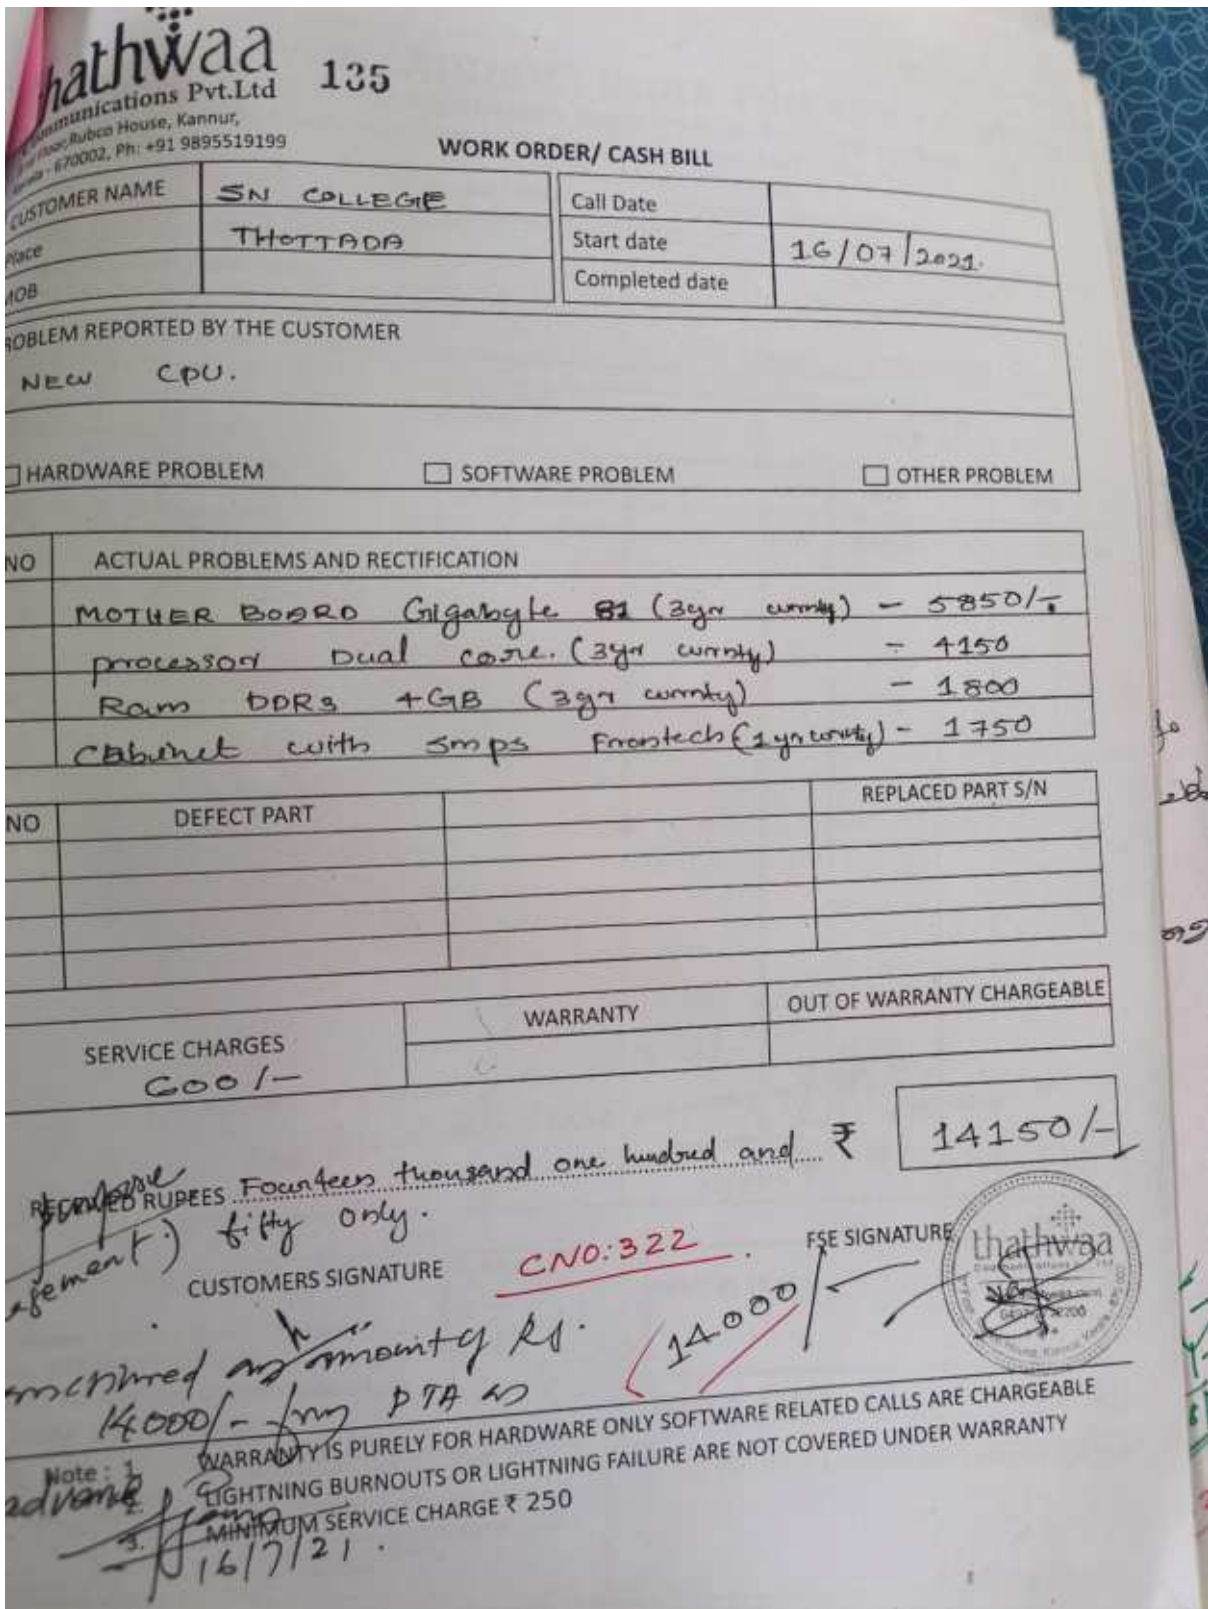 hathwaa
mmunications Pvt.Ltd
Floor, Rubco House, Kannur,
- 670002, Ph: +91 9895519199
135
WORK ORDER/ CASH BILL
CUSTOMER NAME SN COLLEGE
Place THOTTADA
MOB
Call Date
Start date 16/07/2021.
Completed date
ROBLEM REPORTED BY THE CUSTOMER
NEW CPU.
HARDWARE PROBLEM SOFTWARE PROBLEM OTHER PROBLEM
NO ACTUAL PROBLEMS AND RECTIFICATION
MOTHER BOARD Gigabyte 81 (3yr wrrnty) - 5850/-
processor Dual core. (3yr wrrnty) - 4150
Ram DDR3 4GB (3yr wrrnty) - 1800
Cabinet with smps Frontech (1yr wrrnty) - 1750
NO DEFECT PART REPLACED PART S/N
SERVICE CHARGES WARRANTY OUT OF WARRANTY CHARGEABLE
600/-
RECEIVED RUPEES Fourteen thousand one hundred and ₹ 14150/-
fifty only.
CUSTOMERS SIGNATURE CNO:322 FSE SIGNATURE
thathwaa
14000/
amount of Rs.
14000/- from PTA as
advance
Note : 1. WARRANTY IS PURELY FOR HARDWARE ONLY SOFTWARE RELATED CALLS ARE CHARGEABLE
2. LIGHTNING BURNOUTS OR LIGHTNING FAILURE ARE NOT COVERED UNDER WARRANTY
3. MINIMUM SERVICE CHARGE ₹ 250
16/7/21.